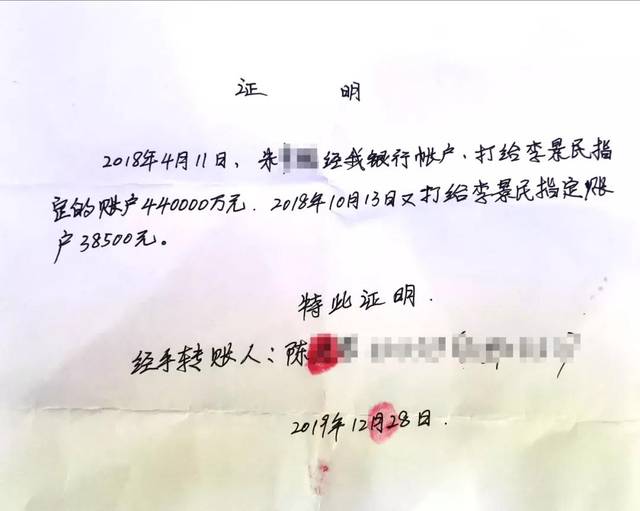 证 明
2018年4月11日、朱 经我银行帐户、打给李景民指
定的账户440000万元.2018年10月13日又打给李景民指定账
户38500元。
特此证明.
经手转账人:陈
2019年12月28日.